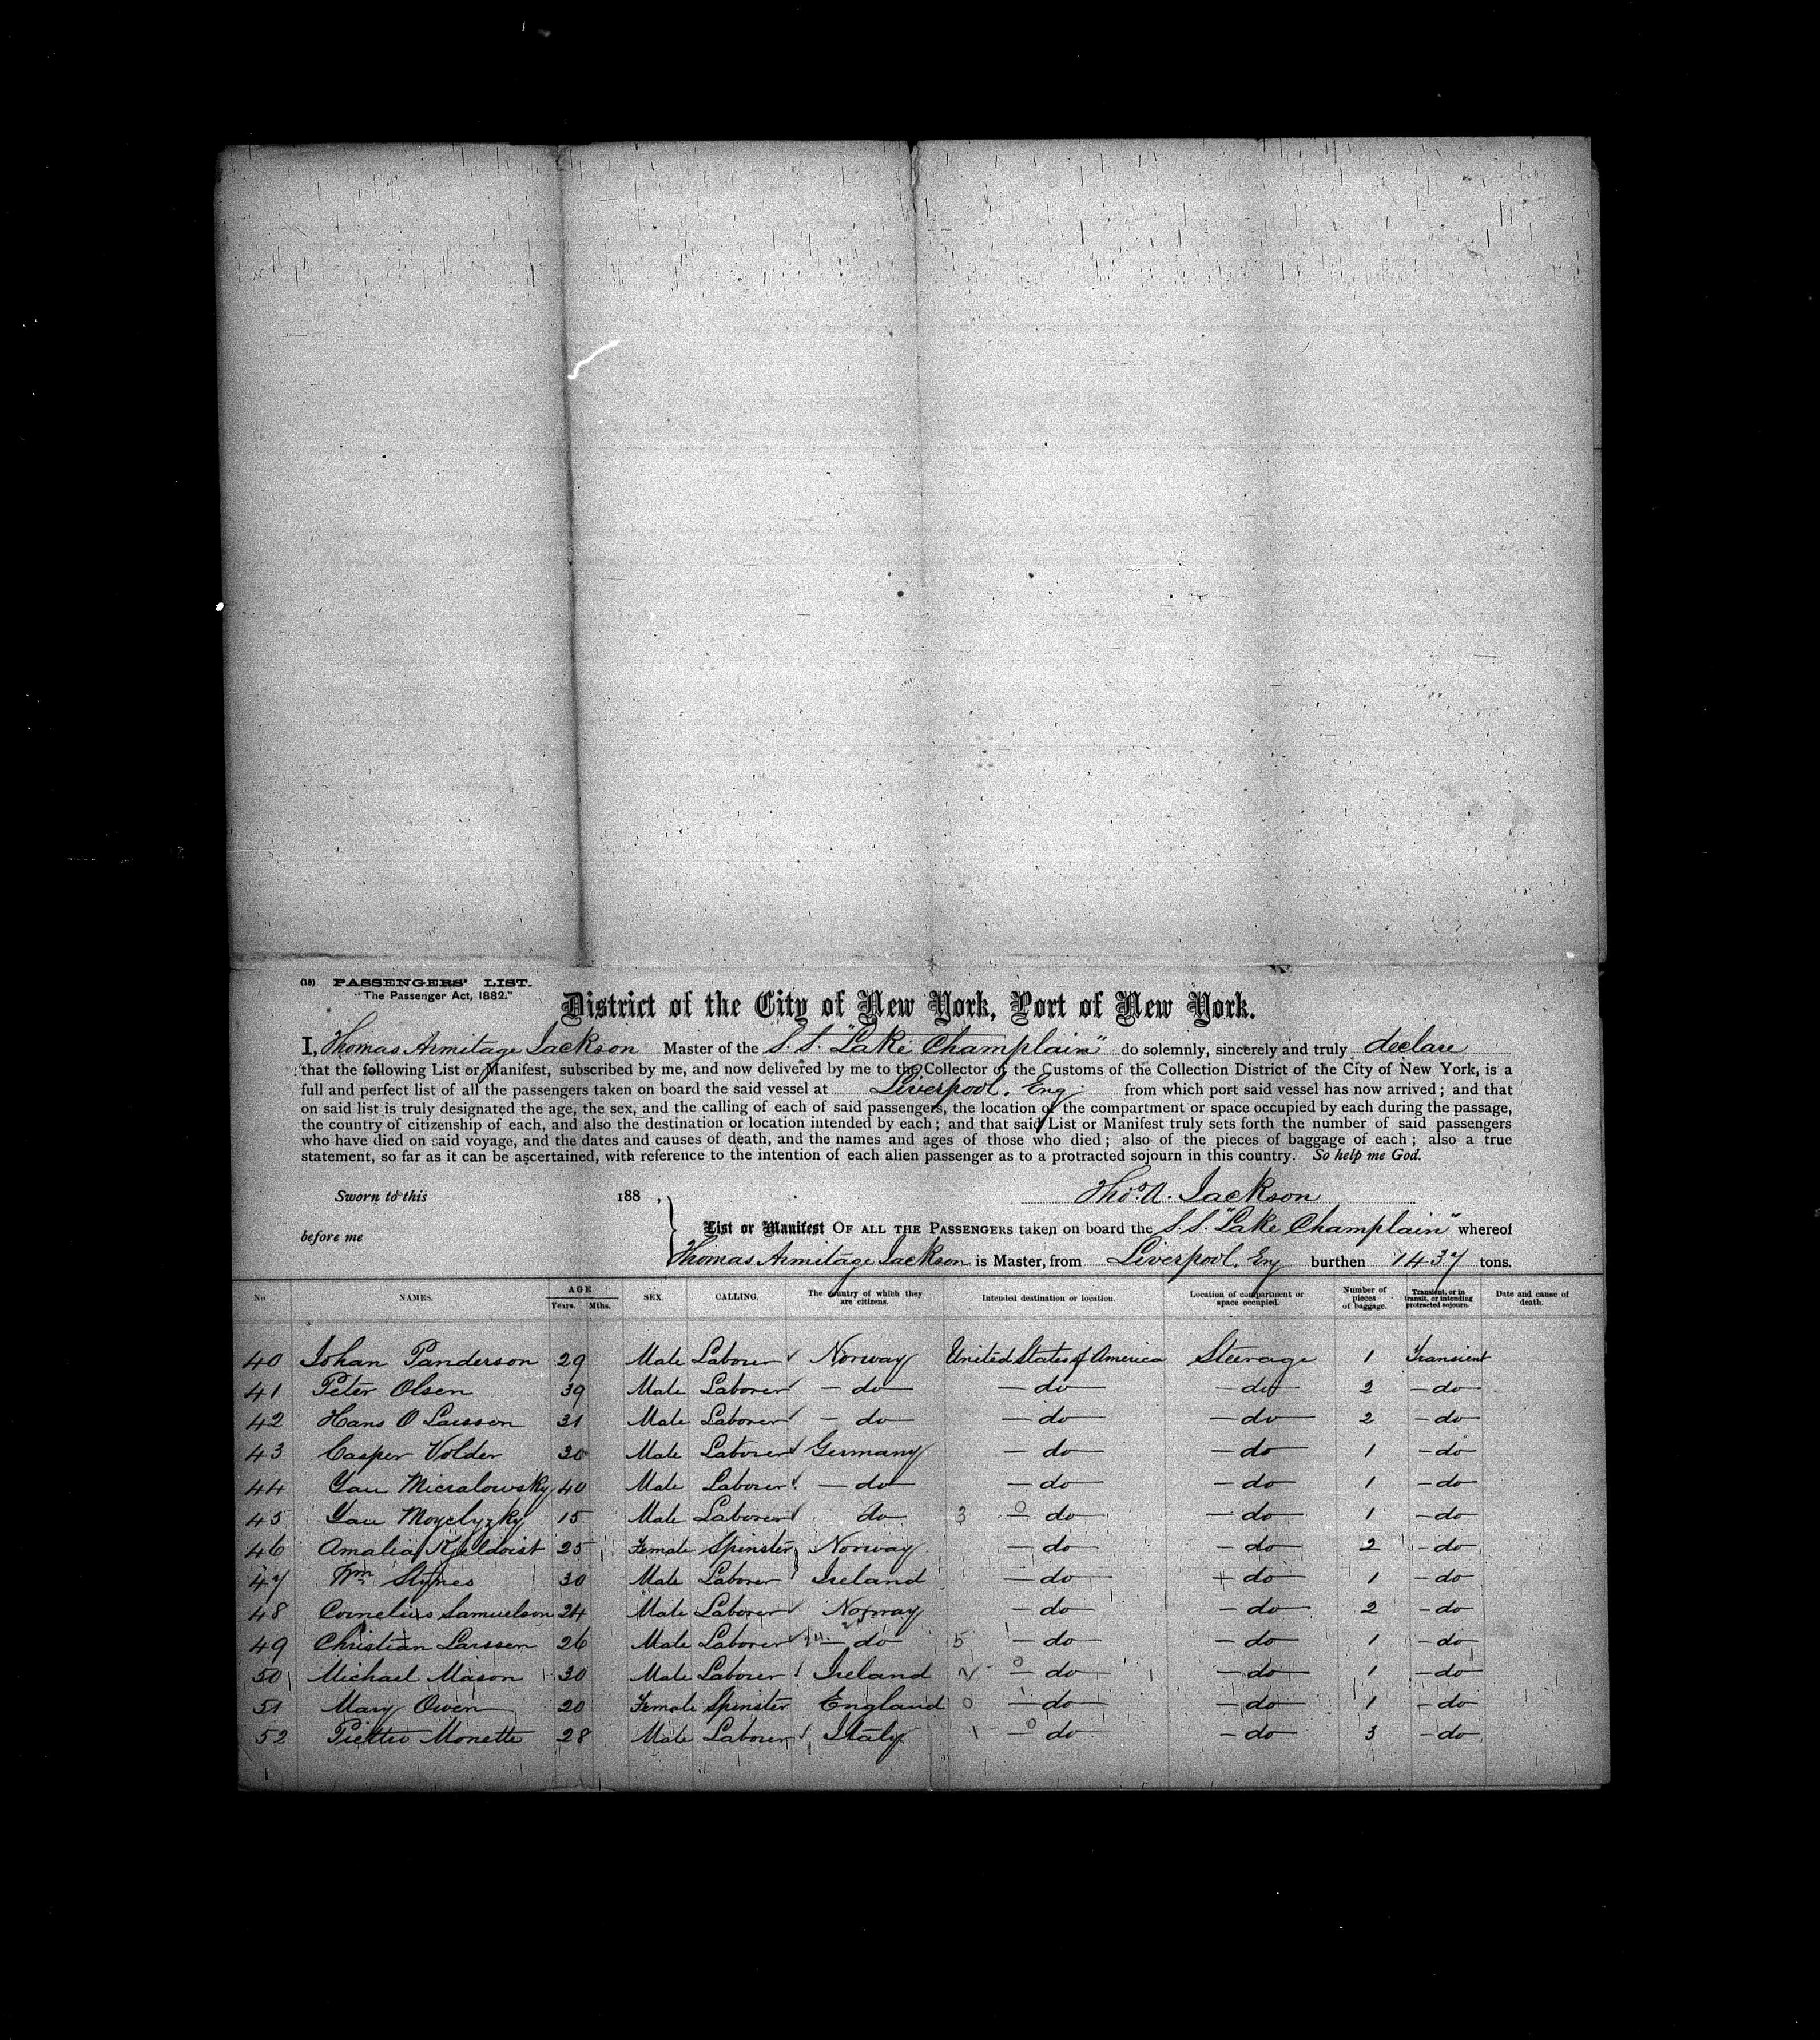 (18) PASSENGERS' LIST.
"The Passenger Act, 1882."
District of the City of New York, Port of New York.
I, Thomas Armitage Jackson Master of the S.S. "Lake Champlain" do solemnly, sincerely and truly declare
that the following List or Manifest, subscribed by me, and now delivered by me to the Collector of the Customs of the Collection District of the City of New York, is a
full and perfect list of all the passengers taken on board the said vessel at Liverpool, Eng from which port said vessel has now arrived; and that
on said list is truly designated the age, the sex, and the calling of each of said passengers, the location of the compartment or space occupied by each during the passage,
the country of citizenship of each, and also the destination or location intended by each; and that said List or Manifest truly sets forth the number of said passengers
who have died on said voyage, and the dates and causes of death, and the names and ages of those who died; also of the pieces of baggage of each; also a true
statement, so far as it can be ascertained, with reference to the intention of each alien passenger as to a protracted sojourn in this country. So help me God.
Sworn to this 188 ,
Thos. A. Jackson
before me
List or Manifest OF ALL THE PASSENGERS taken on board the S.S. "Lake Champlain" whereof
Thomas Armitage Jackson is Master, from Liverpool, Eng burthen 1437 tons.
No. NAMES. AGE Years. Mths. SEX. CALLING. The country of which they are citizens. Intended destination or location. Location of compartment or space occupied. Number of pieces of baggage. Transient, or in transit, or intending protracted sojourn. Date and cause of death.
40 Johan Panderson 29 Male Laborer Norway United States of America Steerage 1 Transient
41 Peter Olsen 39 Male Laborer - do - do - do 2 - do
42 Hans O Larsson 31 Male Laborer - do - do - do 2 - do
43 Casper Volder 30 Male Laborer Germany - do - do 1 - do
44 Yau Micralowsky 40 Male Laborer - do - do - do 1 - do
45 Yau 15 Male Laborer do 3 - do - do 1 - do
46 Amalia 25 Female Spinster Norway - do - do 2 - do
47 Wm Stynes 30 Male Laborer Ireland - do - do 1 - do
48 Cornelius Samuelson 24 Male Laborer Norway - do - do 2 - do
49 Christian Larssen 26 Male Laborer - do 5 - do - do 1 - do
50 Michael Mason 30 Male Laborer Ireland - do - do 1 - do
51 Mary Owen 20 Female Spinster England 0 - do - do 1 - do
52 Piettro Monette 28 Male Laborer Italy 1 - do - do 3 - do